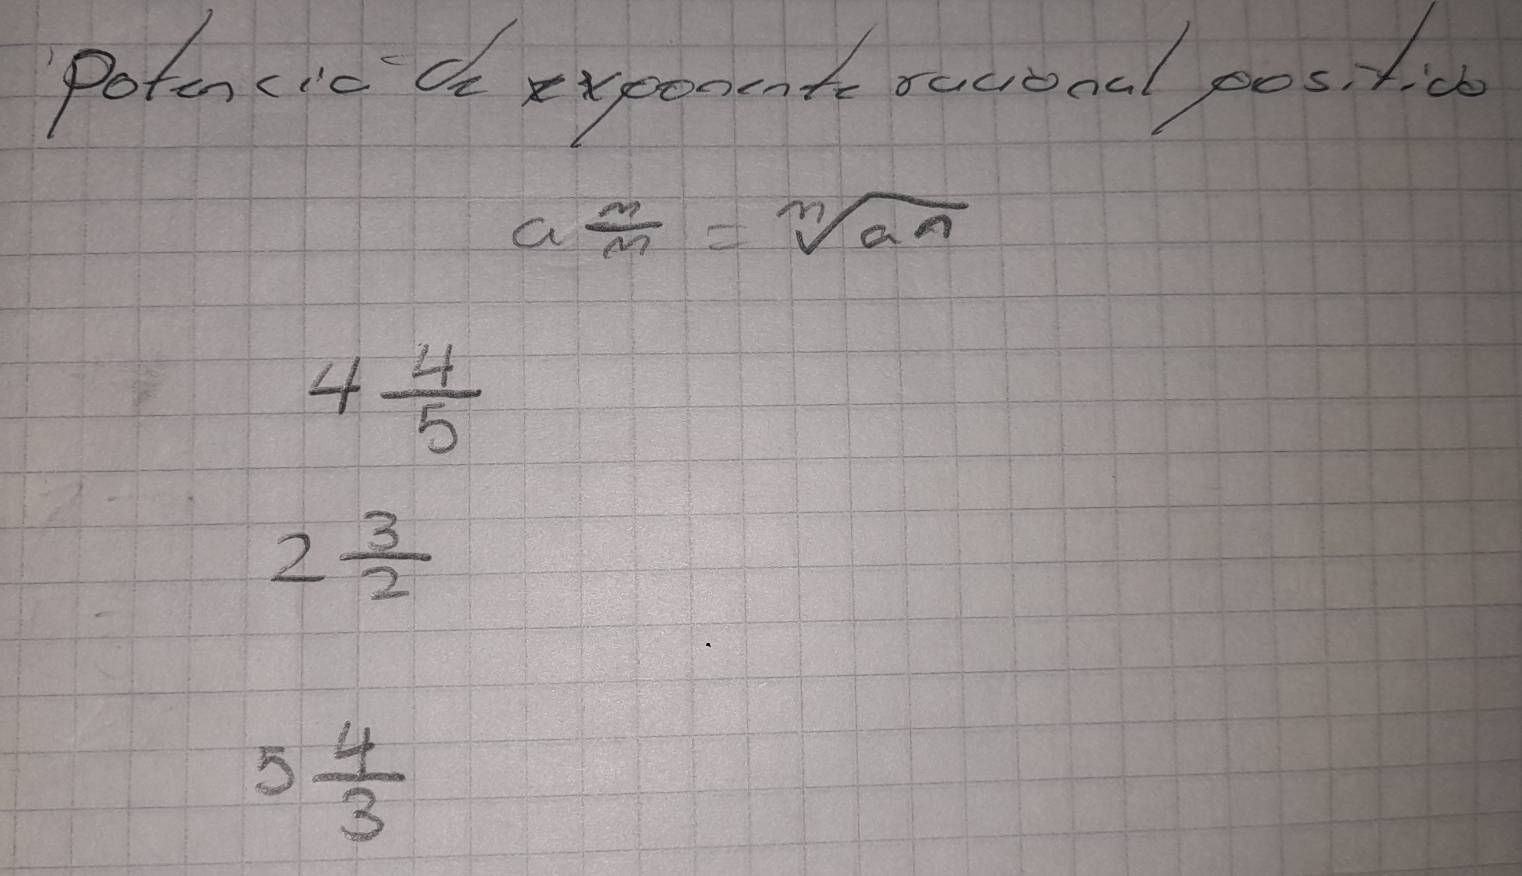 Potencia de exponente racional positivo
a n/m = m√an
4 4/5
2 3/2
5 4/3